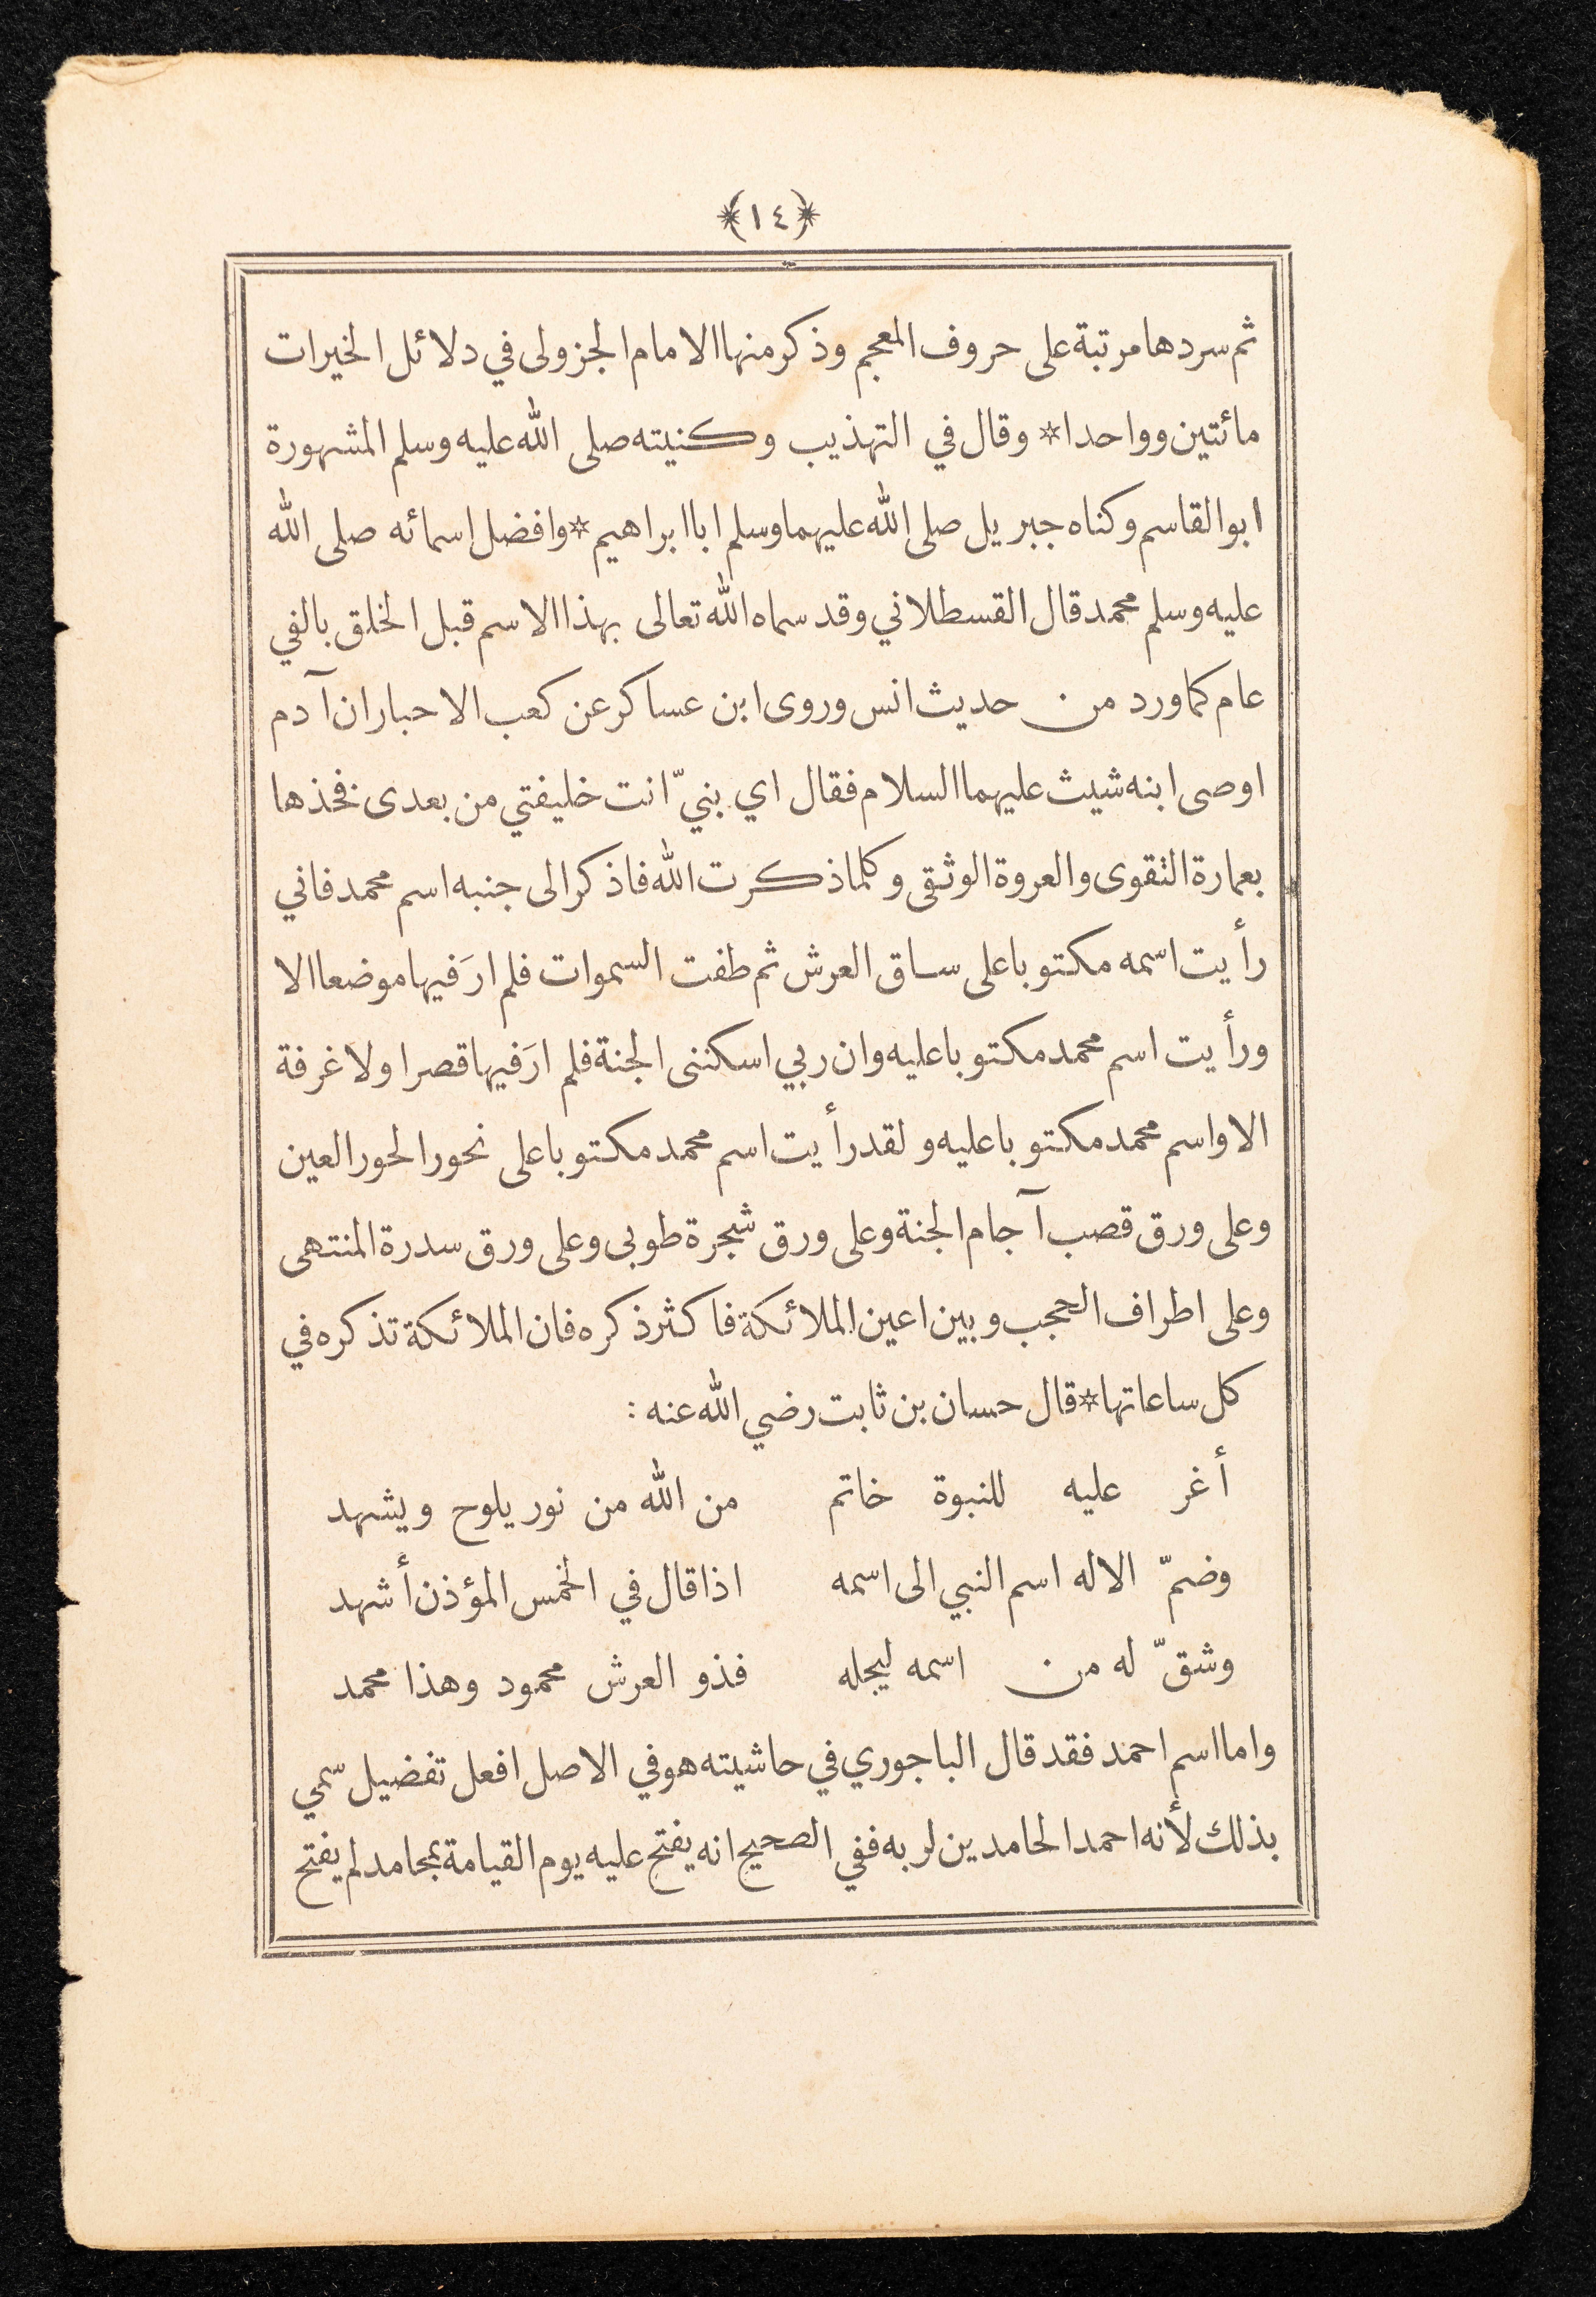 ﴿١٤﴾
ثم سردها مرتبة على حروف المعجم وذكر منها الامام الجزولى في دلائل الخيرات
مائتين وواحدا* وقال في التهذيب وكنيته صلى الله عليه وسلم المشهورة
ابو القاسم وكناه جبريل صلى الله عليهما وسلم ابا ابراهيم* وافضل اسمائه صلى الله
عليه وسلم محمد قال القسطلاني وقد سماه الله تعالى بهذا الاسم قبل الخلق بالفي
عام كما ورد من حديث انس وروى ابن عساكر عن كعب الاحبار ان آدم
اوصى ابنه شيث عليهما السلام فقال اي بنيّ انت خليفتي من بعدى فخذها
بعمارة التقوى والعروة الوثقى وكلما ذكرت الله فاذكر الى جنبه اسم محمد فاني
رأيت اسمه مكتوبا على ساق العرش ثم طفت السموات فلم ارَ فيها موضعا الا
ورأيت اسم محمد مكتوبا عليه وان ربي اسكننى الجنة فلم ارَ فيها قصرا ولا غرفة
الا واسم محمد مكتوبا عليه ولقد رأيت اسم محمد مكتوبا على نحور الحور العين
وعلى ورق قصب آجام الجنة وعلى ورق شجرة طوبى وعلى ورق سدرة المنتهى
وعلى اطراف الحجب وبين اعين الملائكة فاكثر ذكره فان الملائكة تذكره في
كل ساعاتها* قال حسان بن ثابت رضي الله عنه :
أغر عليه للنبوة خاتم من الله من نور يلوح ويشهد
وضمّ الاله اسم النبي الى اسمه اذا قال في الخمس المؤذن أشهد
وشقّ له من اسمه ليجله فذو العرش محمود وهذا محمد
واما اسم احمد فقد قال الباجوري في حاشيته هو في الاصل افعل تفضيل سمي
بذلك لأنه احمد الحامدين لربه ففي الصحيح انه يفتح عليه يوم القيامة بمحامد لم يفتح